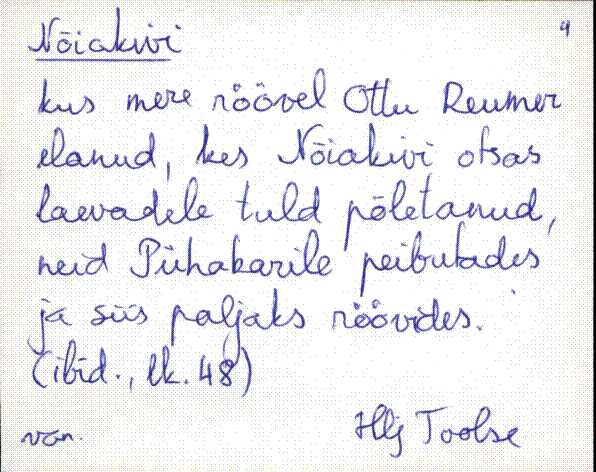 Nõiakivi
4
kus mere röövel Ottu Reumer
elanud, kes Nõiakivi otsas
laevadele tuld põletanud,
neid Pühakarile peibutades
ja siis paljaks röövides.
(ibid., lk. 48)
van.
Hlj Toolse